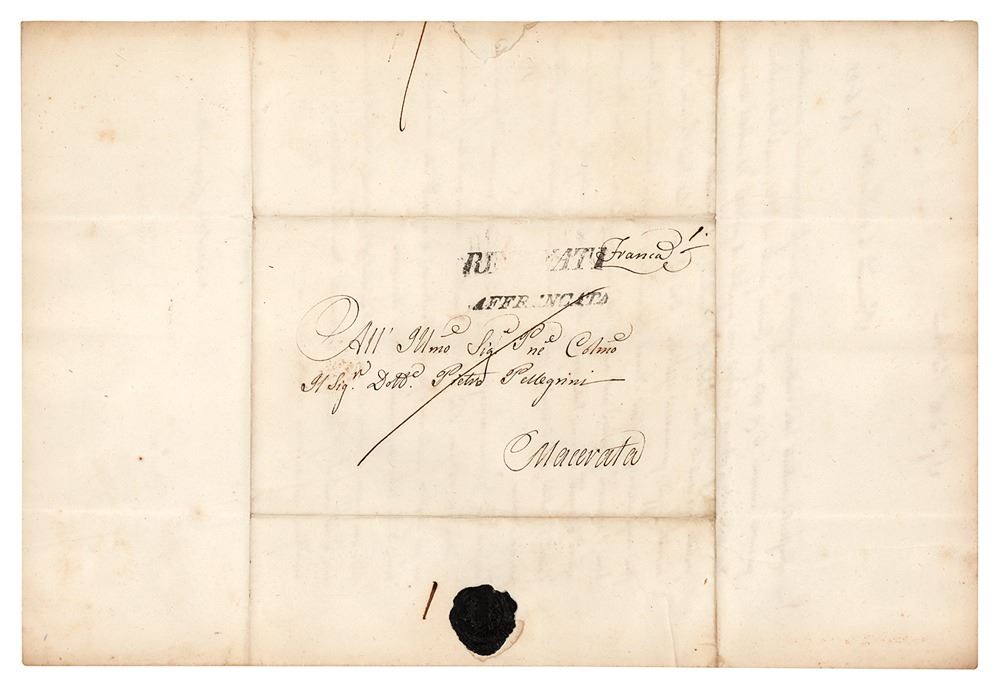 Franca
AFFRANCATA
All' Illmo Sige Pne Colmo
Il Sigr. Dotte. Pietro Pellegrini
Macerata